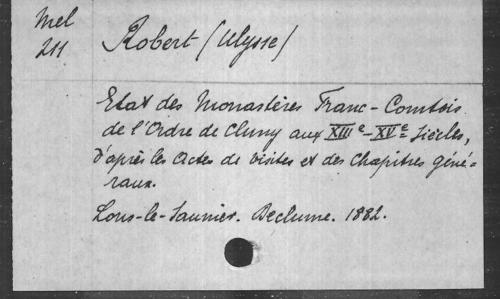 Mel
211
Robert (Ulysse)
Etat des Monastères Franc-Comtois
de l'Ordre de Cluny aux XIIIe-XVe Siècles,
d'après les Actes de visites et des Chapitres géné-
raux.
Lons-le-Saunier. Declume. 1882.